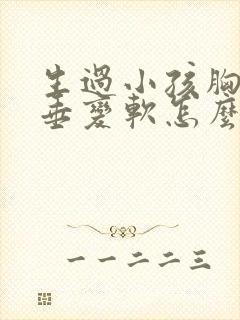 生過小孩胸
垂變軟怎麼
一一二二三